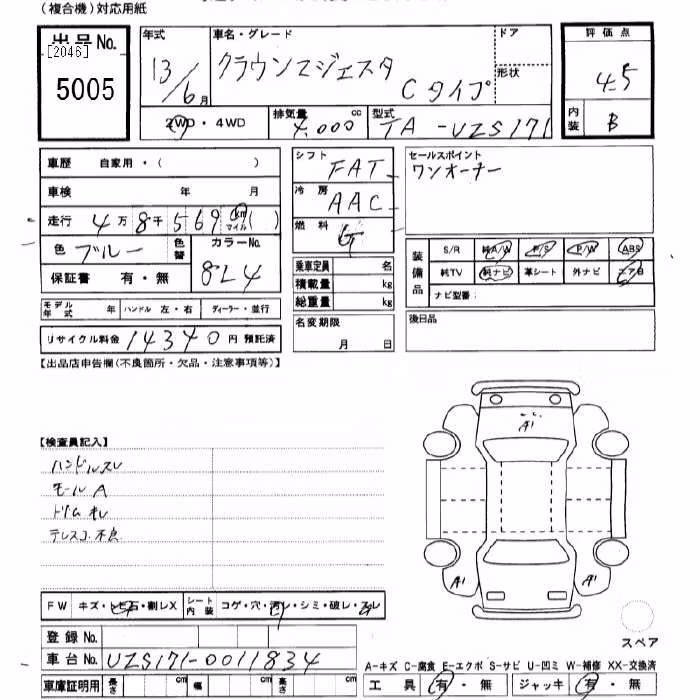 (複合機)対応用紙
出品No. [2046] 5005
年式 13/6月
車名・グレード クラウンマジェスタ Cタイプ
ドア
形状
2WD・4WD
排気量 4,000cc
型式 TA-UZS171
評価点 4.5
内装 B
車歴 自家用・( )
車検 年 月
走行 4万8千569 km マイル ( )
色 ブルー 色替
カラーNo. 8L4
保証書 有・無
モデル年式 ハンドル 左・右 ディーラー・並行
リサイクル料金 14340円 預託済
シフト FAT
冷房 AAC
燃料 G
乗車定員 名
積載量 kg
総重量 kg
名変期限 月 日
セールスポイント
ワンオーナー
装備品 S/R 純A/W P/S P/W ABS
純TV 純ナビ 革シート 外ナビ エアB
ナビ型番:
後日品
【出品店申告欄(不良箇所・欠品・注意事項等)】
【検査員記入】
ハンドルスレ
モールA
トリムキレ
テレスコ不良
A1
A1
A1
FW キズ・トビ石・割レX
シート内装 コゲ・穴・汚レ・シミ・破レ・スレ
スペア
登録No.
車台No. UZS171-0011834
車庫証明用 長さ cm 幅 cm 高さ cm
A-キズ C-腐食 E-エクボ S-サビ U-凹ミ W-補修 XX-交換済
工具 有・無 ジャッキ 有・無